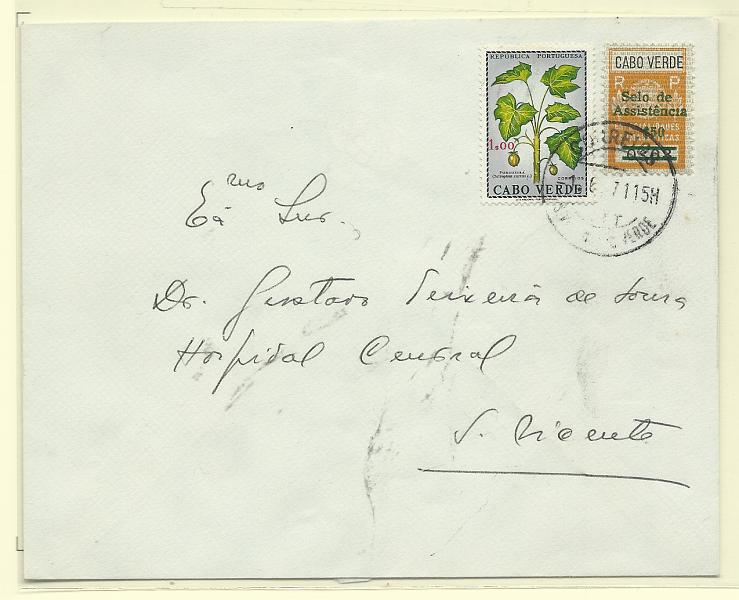 REPÚBLICA PORTUGUESA
1$00
PURGUEIRA
CORREIOS
CABO VERDE
CABO VERDE
R P
Selo de
Assistência
$50
71 15H
VERDE
Exmo Snr.
Dr. Gustavo Teixeira de Sousa
Hospital Central
S. Vicente